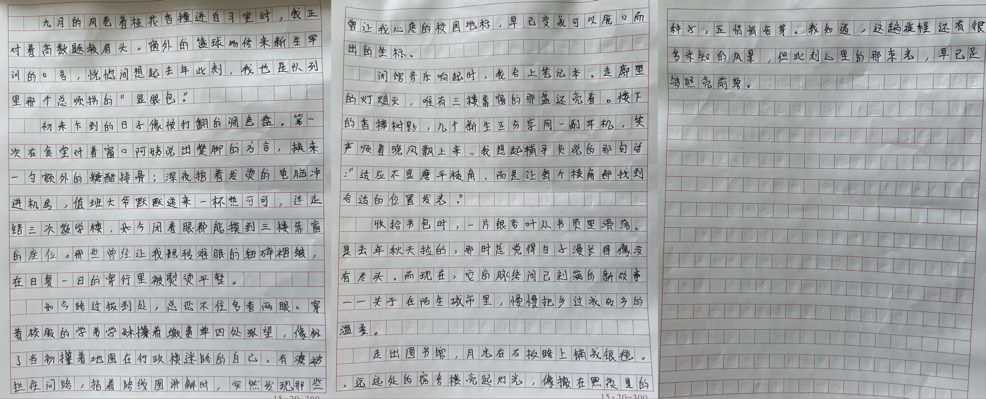 九月的风卷着桂花香撞进自习室时，我正
对着高数题皱眉头。窗外的篮球场传来新生军
训的口号，恍惚间想起去年此刻，我也是队列
里那个总顺拐的“显眼包”。
初来乍到的日子像被打翻的调色盘。第一
次在食堂对着窗口阿姨说出蹩脚的方言，换来
一勺额外的糖醋排骨；深夜抱着发烫的电脑冲
进机房，值班大爷默默递来一杯热可可，连走
错三次教学楼，如今闭着眼都能摸到三楼靠窗
的座位。那些曾经让我辗转难眠的细碎褶皱，
在日复一日的穿行里被熨烫平整。
如今路过报到处，总忍不住多看两眼。穿
着校服的学弟学妹攥着缴费单四处张望，像极
了当初攥着地图在行政楼迷路的自己。有
拦住问路，指着路线图讲解时，突然发现那些
曾让我心慌的校园地标，早已变成可以脱口而
出的坐标。
闭馆音乐响起时，我合上笔记本。走廊里
的灯熄灭，唯有三楼靠窗的那盏还亮着。楼下
的香樟树影，几个新生正分享同一副耳机，笑
声顺着晚风飘上来。我想起辅导员说的那句话
：“适应不是磨平棱角，而是让每个棱角都找到
合适的位置发光。”
收拾书包时，一片银杏叶从书页里滑落。
是去年秋天捡的，那时总觉得日子漫长得像没
有尽头。而现在，它的脉络间已刻满的新故事
——关于在陌生城市里，慢慢把乡过成故乡的
温柔。
走出图书馆，月光在石板路上铺成银毯。
远处的宿舍楼亮起灯光，像撒在黑夜里的
种子，正悄悄发芽。我知道，这趟旅程还有很
多未知的风景，但此刻心里的那束光，早已足
够照亮前路。